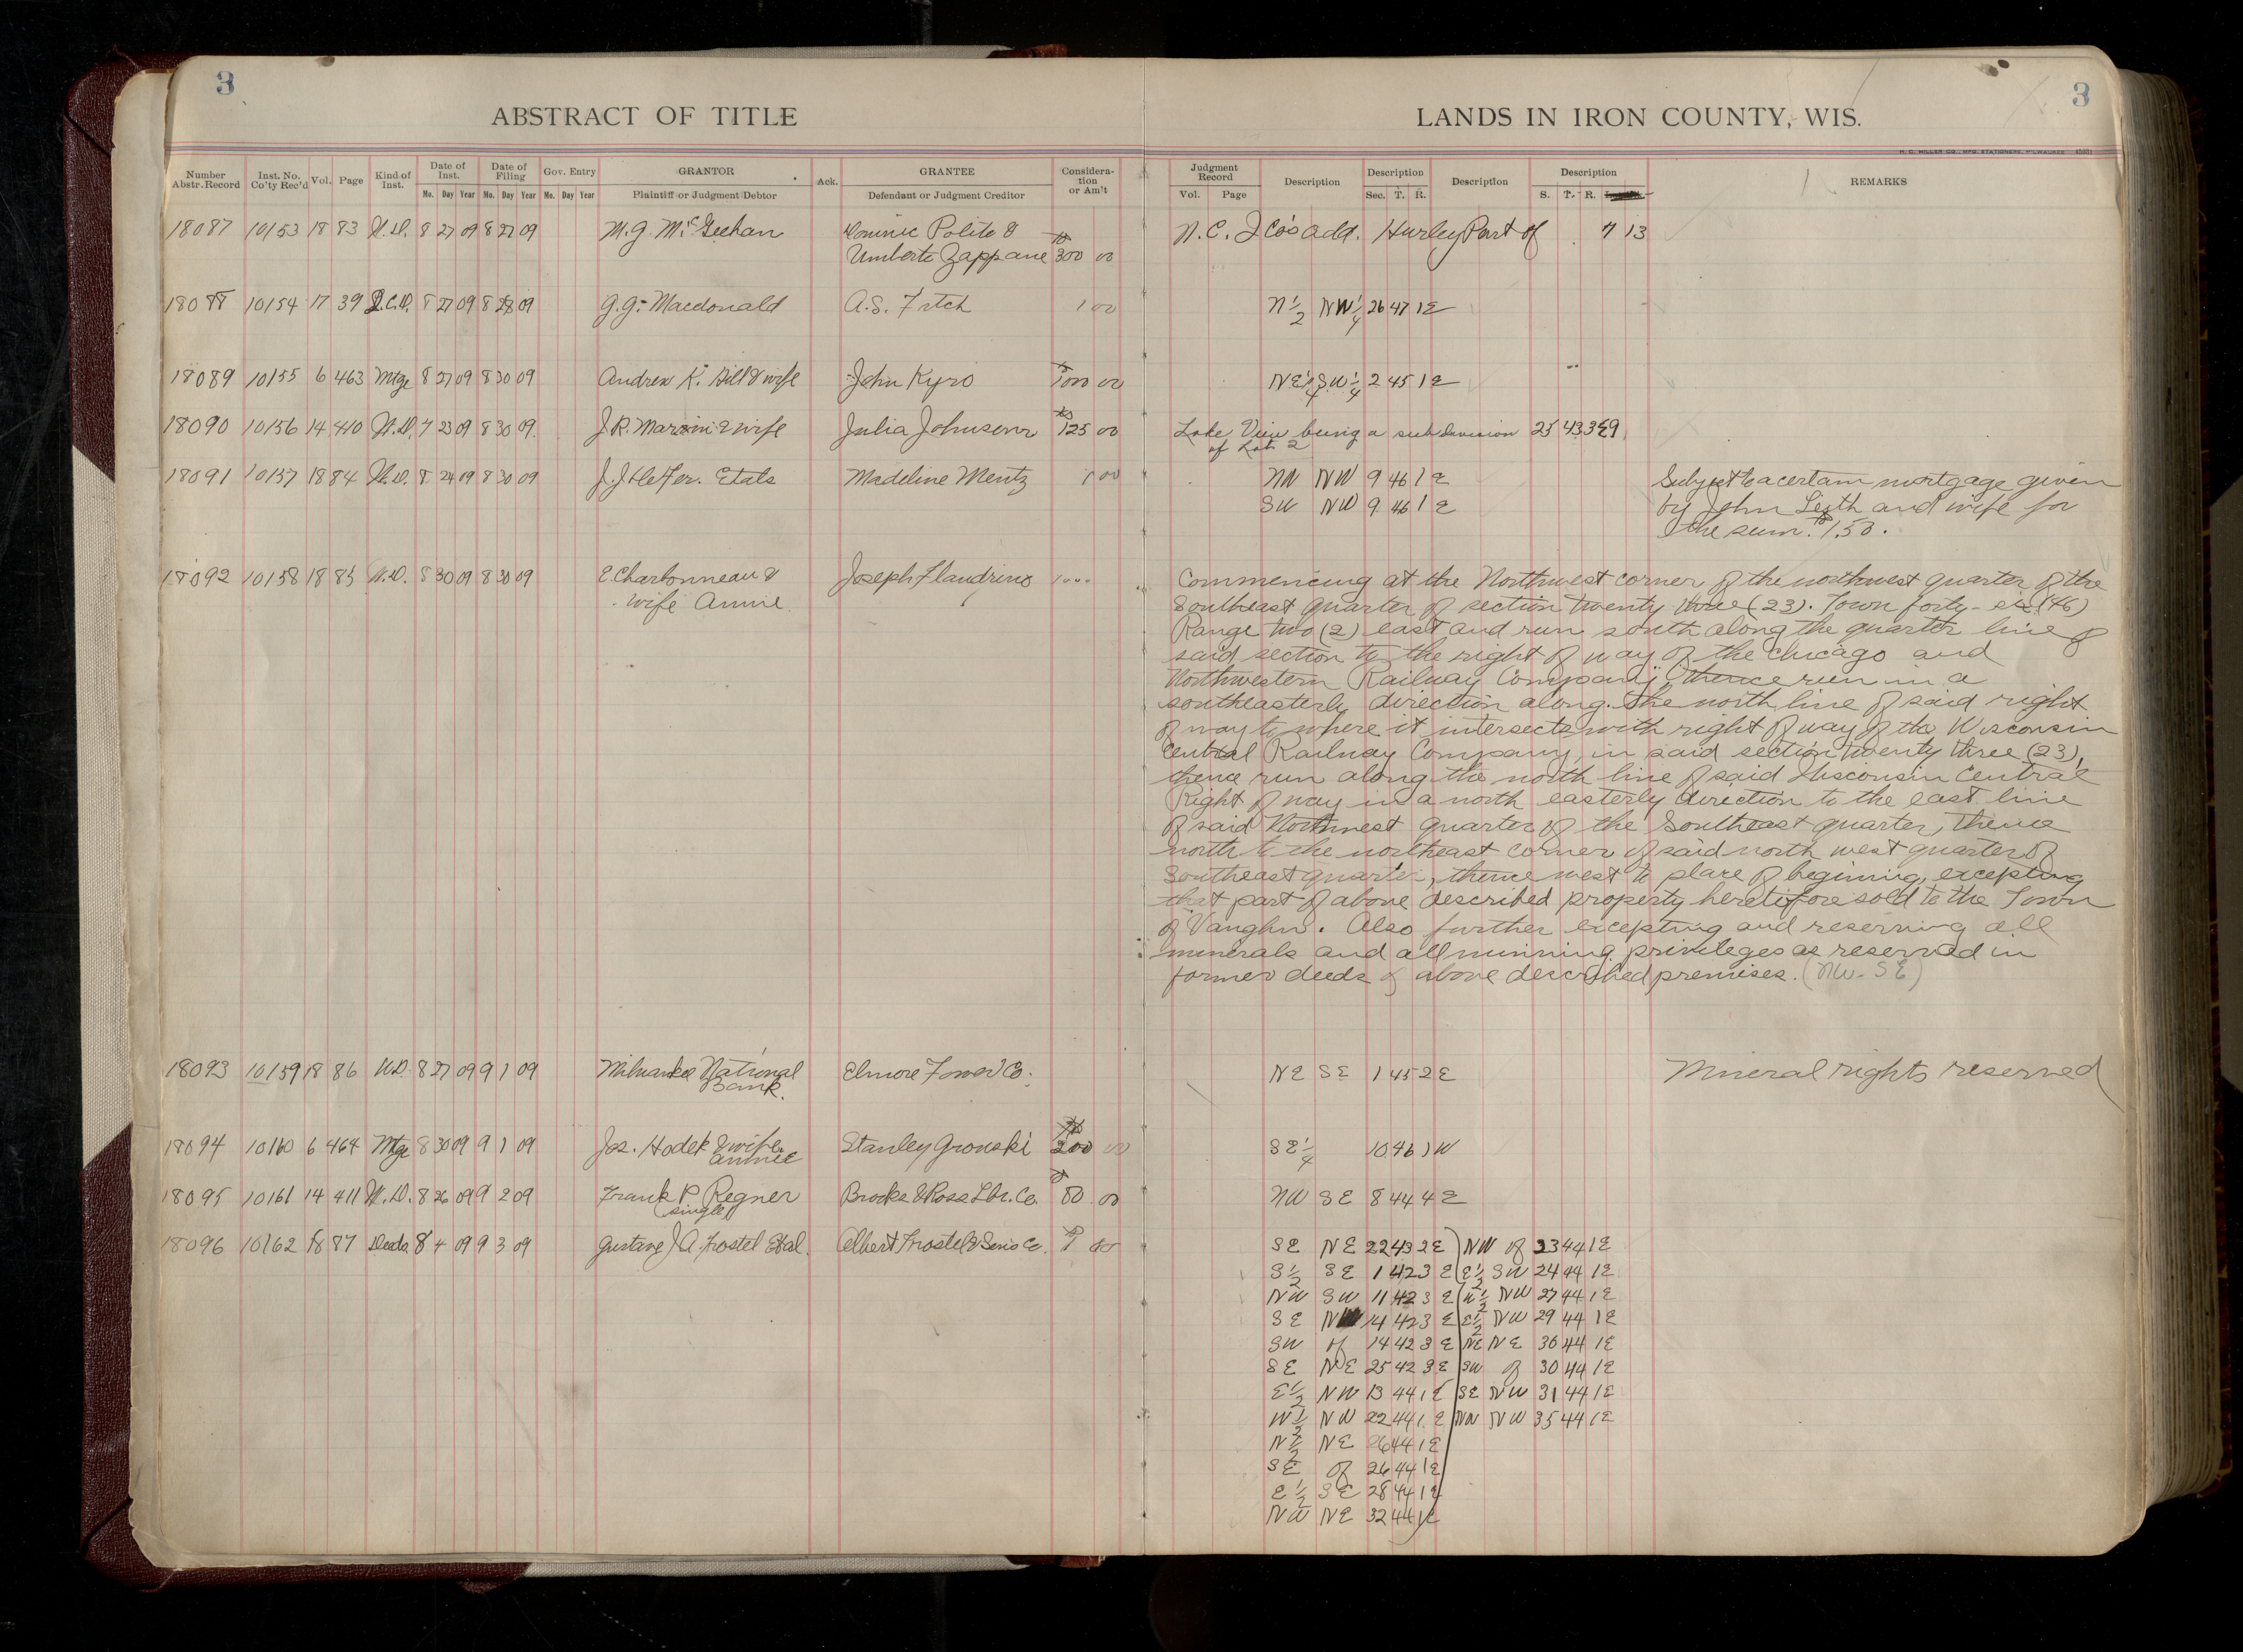 3
3
ABSTRACT OF TITLE
LANDS IN IRON COUNTY, WIS.
H. C. MILLER CO., MFG. STATIONERS, MILWAUKEE
Number Abstr. Record
Inst. No. Co'ty Rec'd
Vol.
Page
Kind of Inst.
Date of Inst. Mo. Day Year
Date of Filing Mo. Day Year
Gov. Entry Mo. Day Year
GRANTOR Plaintiff or Judgment Debtor
Ack.
GRANTEE Defendant or Judgment Creditor
Considera- tion or Am't
Judgment Record Vol. Page
Description
Description Sec. T. R.
Description
Description S. T. R.
REMARKS
18087 10153 18 83 W.D. 8 27 09 8 27 09 M. G. McGeehan Dominic Polito & N. C. I Co's Add. Hurley Part of 7 13
Umberto Zappane $300 00
18088 10154 17 39 Q.C.D. 8 27 09 8 28 09 G. G. Macdonald A. S. Fitch 1 00 N 1/2 NW 1/4 26 47 1 E
18089 10155 6 463 Mtge 8 27 09 8 30 09 Andrew K. Hill & wife John Kyro $1000 00 NE 1/4 SW 1/4 2 45 1 E
18090 10156 14 410 W.D. 7 23 09 8 30 09 J. R. Marsin & wife Julia Johnson $125 00 Lake View being a subdivision 25 43 3 E 9
of Lot 2
18091 10157 18 84 W.D. 8 24 09 8 30 09 J. J. Hefer. Etals Madeline Mentz 1 00 NW NW 9 46 1 E Subject to a certain mortgage given
SW NW 9 46 1 E by John Leith and wife for
the sum $150.
18092 10158 18 85 W.D. 8 30 09 8 30 09 E. Charbonneau & Joseph Flandrino 1 00 Commencing at the Northwest corner of the northwest quarter of the
wife Annie Southeast quarter of section twenty three (23). Town forty-six (46)
Range two (2) east and run south along the quarter line of
said section to the right of way of the Chicago and
Northwestern Railway Company, thence run in a
southeasterly direction along the north line of said right
of way to where it intersects with right of way of the Wisconsin
Central Railway Company, in said section twenty three (23),
thence run along the north line of said Wisconsin Central
Right of way in a north easterly direction to the east line
of said Northwest quarter of the Southeast quarter, thence
north to the northeast corner of said north west quarter of
Southeast quarter, thence west to place of begining, excepting
that part of above described property heretofore sold to the Town
of Vaughn. Also further excepting and reserving all
minerals and all minning privileges as reserved in
former deeds of above described premises. (NW-SE)
18093 10159 18 86 W.D. 8 27 09 9 1 09 Milwaukee National Elmore Fower Co. NE SE 1 45 2 E Mineral rights reserved
Bank.
18094 10160 6 464 Mtge 8 30 09 9 1 09 Jos. Hodek & wife Stanley Gronski $200 00 SE 1/4 10 46 1 W
Annie
18095 10161 14 411 W.D. 8 26 09 9 2 09 Frank P. Regner Brooks & Ross Lbr. Co. $50 00 NW SE 8 44 4 E
single
18096 10162 18 87 Deeds 8 4 09 9 3 09 Gustave J. A. Trostel Etal. Albert Trostel & Sons Co. $1 00 SE NE 22 43 2 E NW of 23 44 1 E
S 1/2 SE 1 42 3 E E 1/2 SW 24 44 1 E
NW SW 11 42 3 E W 1/2 NW 27 44 1 E
SE NW 14 42 3 E E 1/2 NW 29 44 1 E
SW of 14 42 3 E NE NE 30 44 1 E
SE NE 25 42 3 E SW of 30 44 1 E
E 1/2 NW 13 44 1 E SE NW 31 44 1 E
W 1/2 NW 22 44 1 E NW NW 35 44 1 E
N 1/2 NE 26 44 1 E
SE of 26 44 1 E
E 1/2 SE 28 44 1 E
NW NE 32 44 1 E